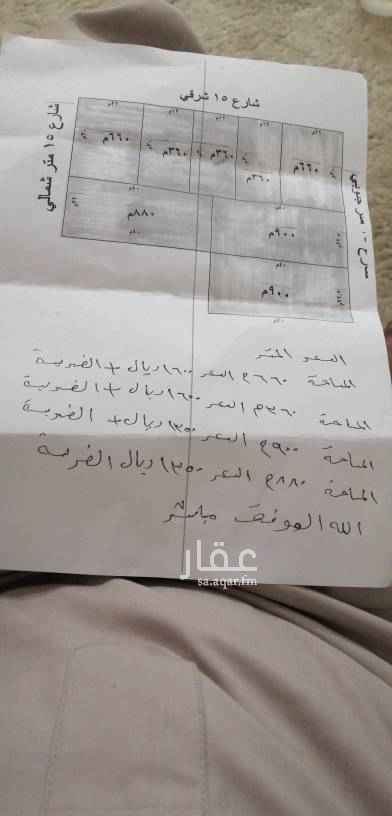 شارع ١٥ شرقي
شارع ١٥ متر شمالي
جنوبي
٦٦٠م
٣٦٠م
٣٦٠م
٣٦٠م
٦٦٠م
٨٨٠م
٩٠٠م
٩٠٠م
السعر المتر
المساحة ٦٦٠م السعر ١٦٠٠ ريال + الضريبة
المساحة ٣٦٠م السعر ١٦٠٠ ريال + الضريبة
المساحة ٩٠٠م السعر ١٣٥٠ ريال + الضريبة
المساحة ٨٨٠م السعر ١٣٥٠ ريال الضريبة
الله الموفق مباشر
عقار
sa.aqar.fm